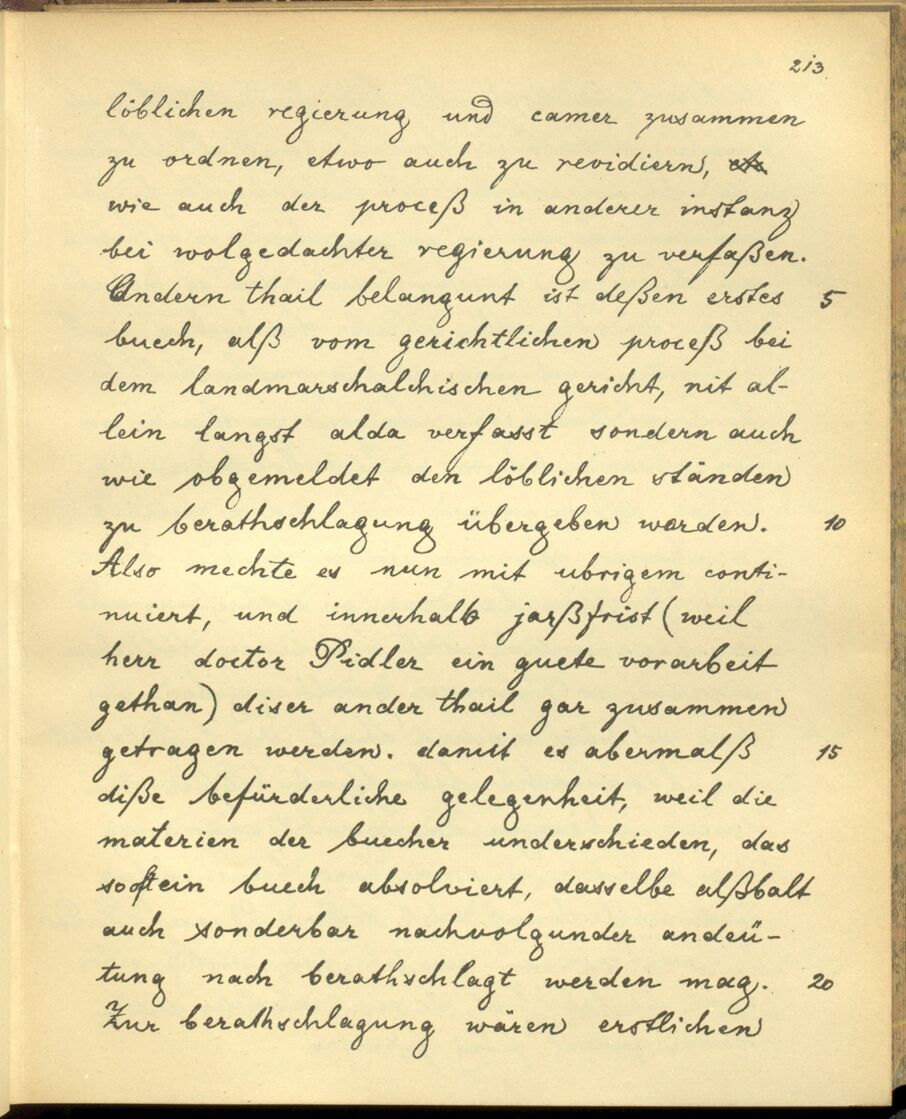 213
löblichen regierung und camer zusammen
zu ordnen, etwo auch zu revidiern,
wie auch der proceß in anderer instanz
bei wolgedachter regierung zu verfaßen.
Andern thail belangunt ist deßen erstes 5
buech, alß vom gerichtlichen proceß bei
dem landmarschalchischen gericht, nit al-
lein langst alda verfasst sondern auch
wie obgemeldet den löblichen ständen
zu berathschlagung übergeben worden. 10
Also mechte es nun mit ubrigem conti-
nuiert, und innerhalb jarßfrist (weil
herr doctor Pidler ein guete vorarbeit
gethan) diser ander thail gar zusammen
getragen werden. damit es abermalß 15
diße befürderliche gelegenheit, weil die
materien der buecher underschieden, das
sooft ein buech absolviert, dasselbe alßbalt
auch sonderbar nachvolgunder andeü-
tung nach berathschlagt werden mag. 20
Zur berathschlagung wären erstlichen